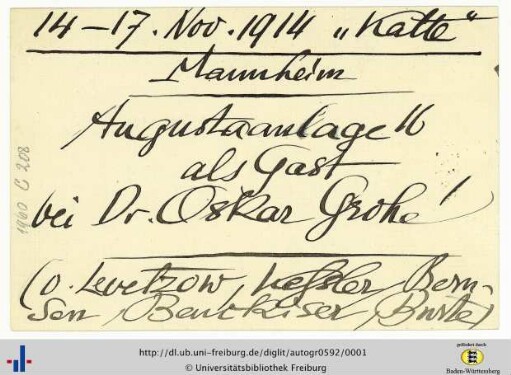 14–17. Nov. 1914 „Katte“
Mannheim
Augustaanlage 16
als Gast
bei Dr. Oskar Grohé
(v. Levetzow, Kessler, Bern-
sen, Benckiser, Burte)
1960 C 208
http://dl.ub.uni-freiburg.de/diglit/autogr0592/0001
© Universitätsbibliothek Freiburg
gefördert durch
Baden-Württemberg